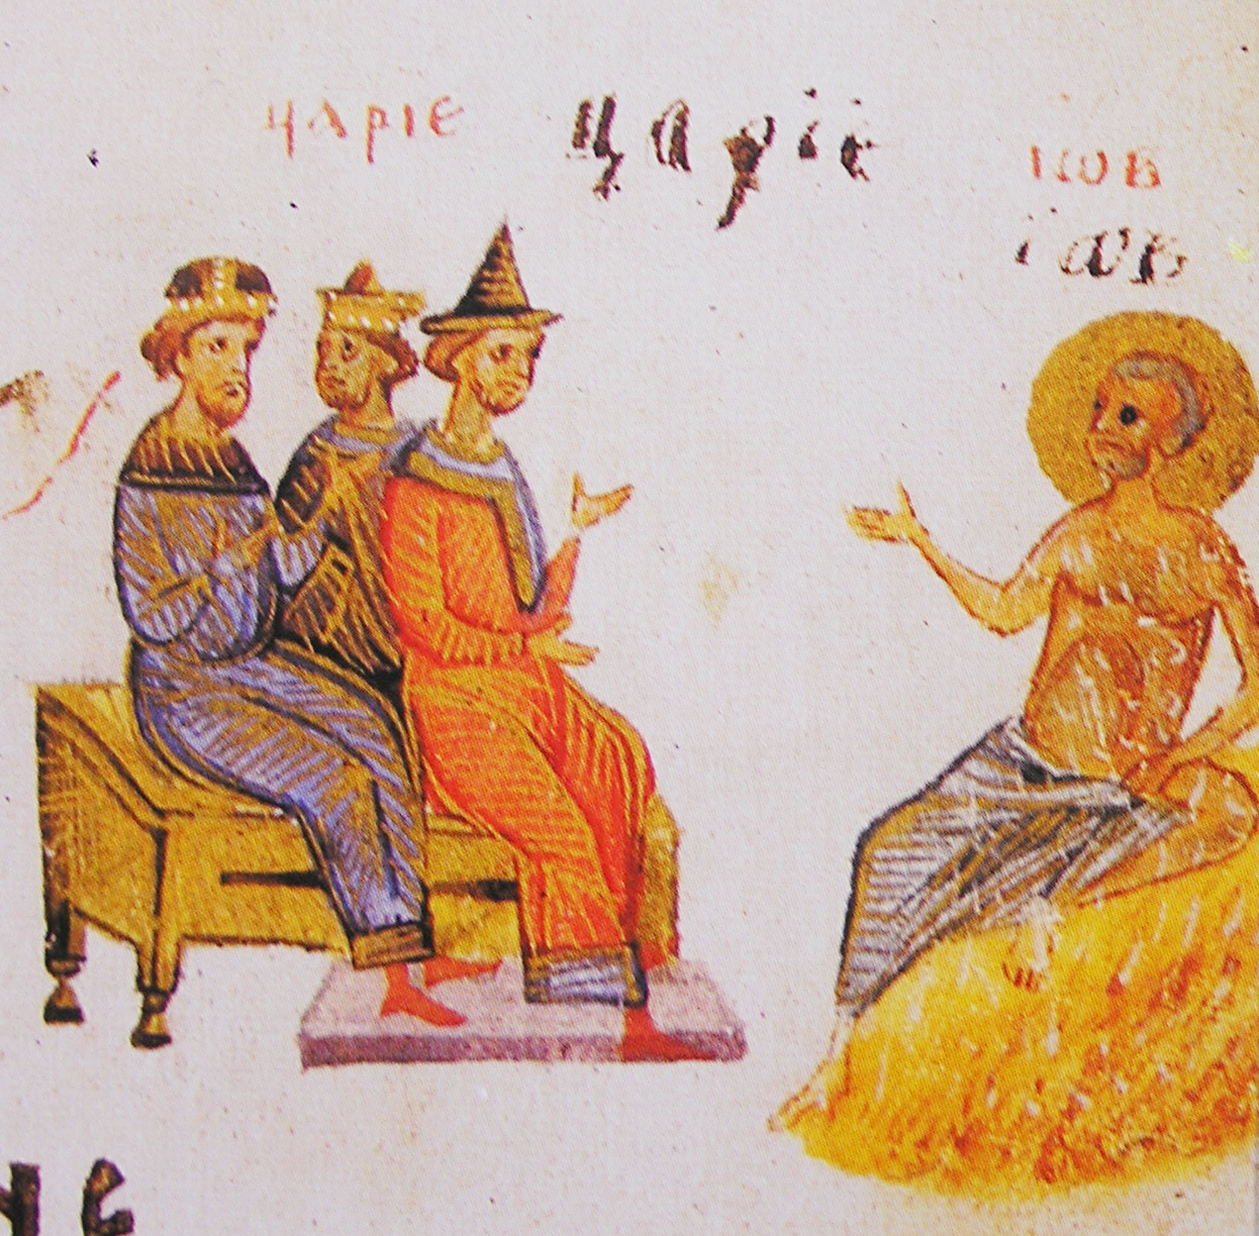 царіє царіє
іѡв
іѡв